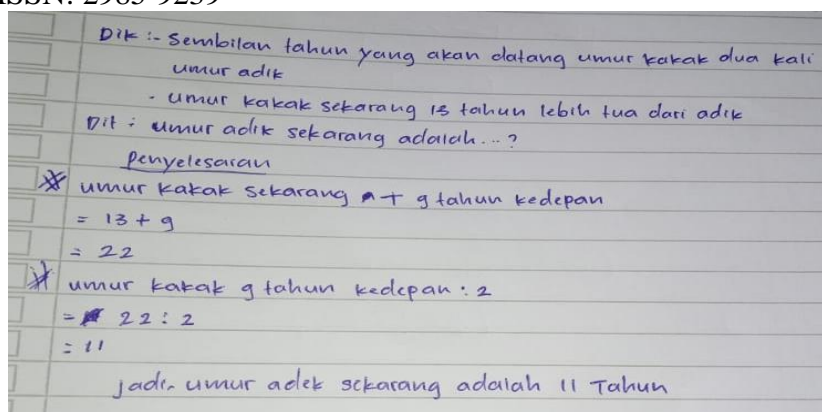 ISSN: 2985-9239
Dik :- Sembilan tahun yang akan datang umur kakak dua kali
umur adik
- umur kakak sekarang 13 tahun lebih tua dari adik
Dit : umur adik sekarang adalah...?
Penyelesaian
umur kakak sekarang + 9 tahun kedepan
= 13 + 9
= 22
umur kakak 9 tahun kedepan : 2
= 22 : 2
= 11
jadi, umur adek sekarang adalah 11 Tahun